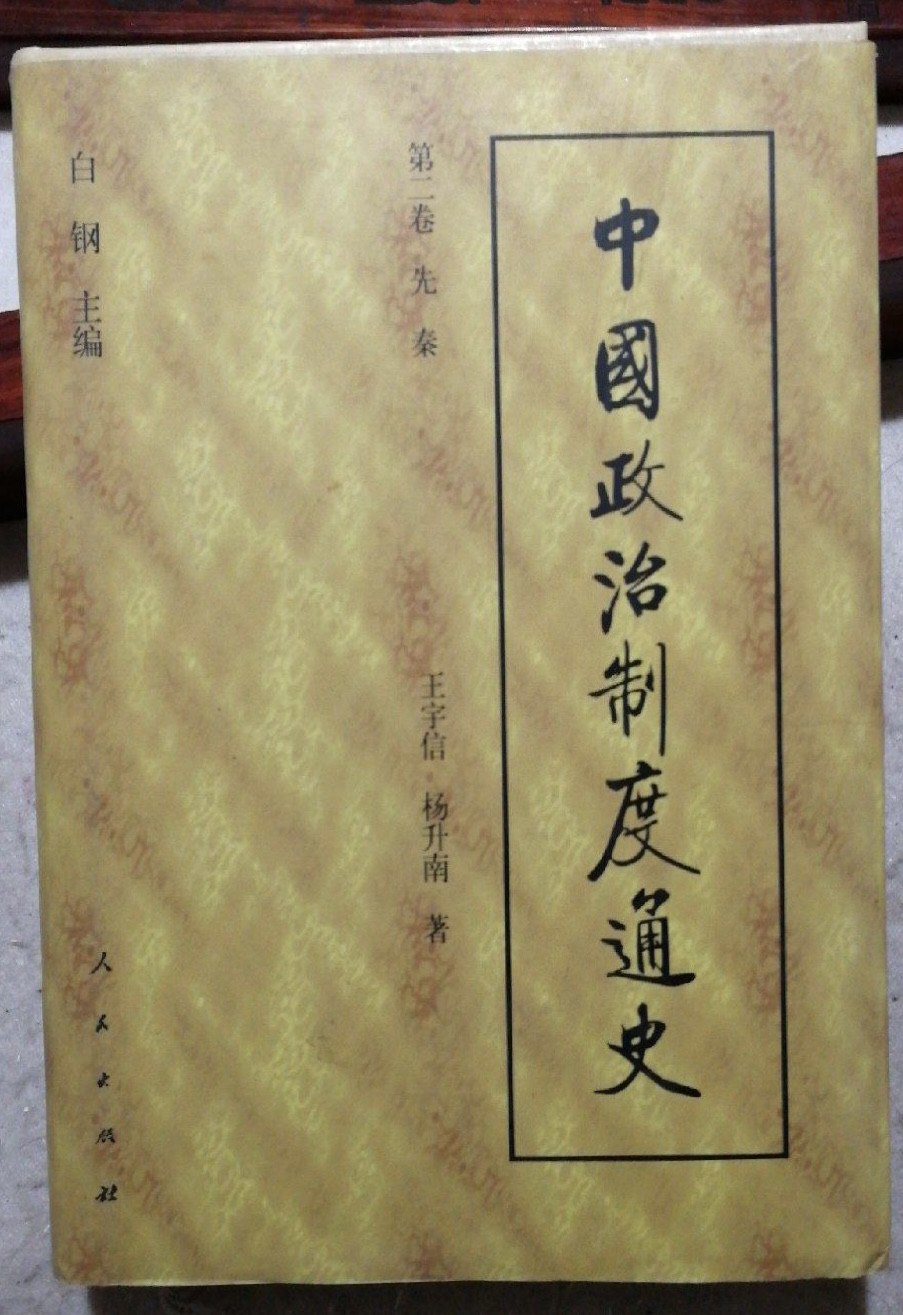 中國政治制度通史
第二卷 先秦
王宇信 杨升南 著
白钢 主编
人民出版社